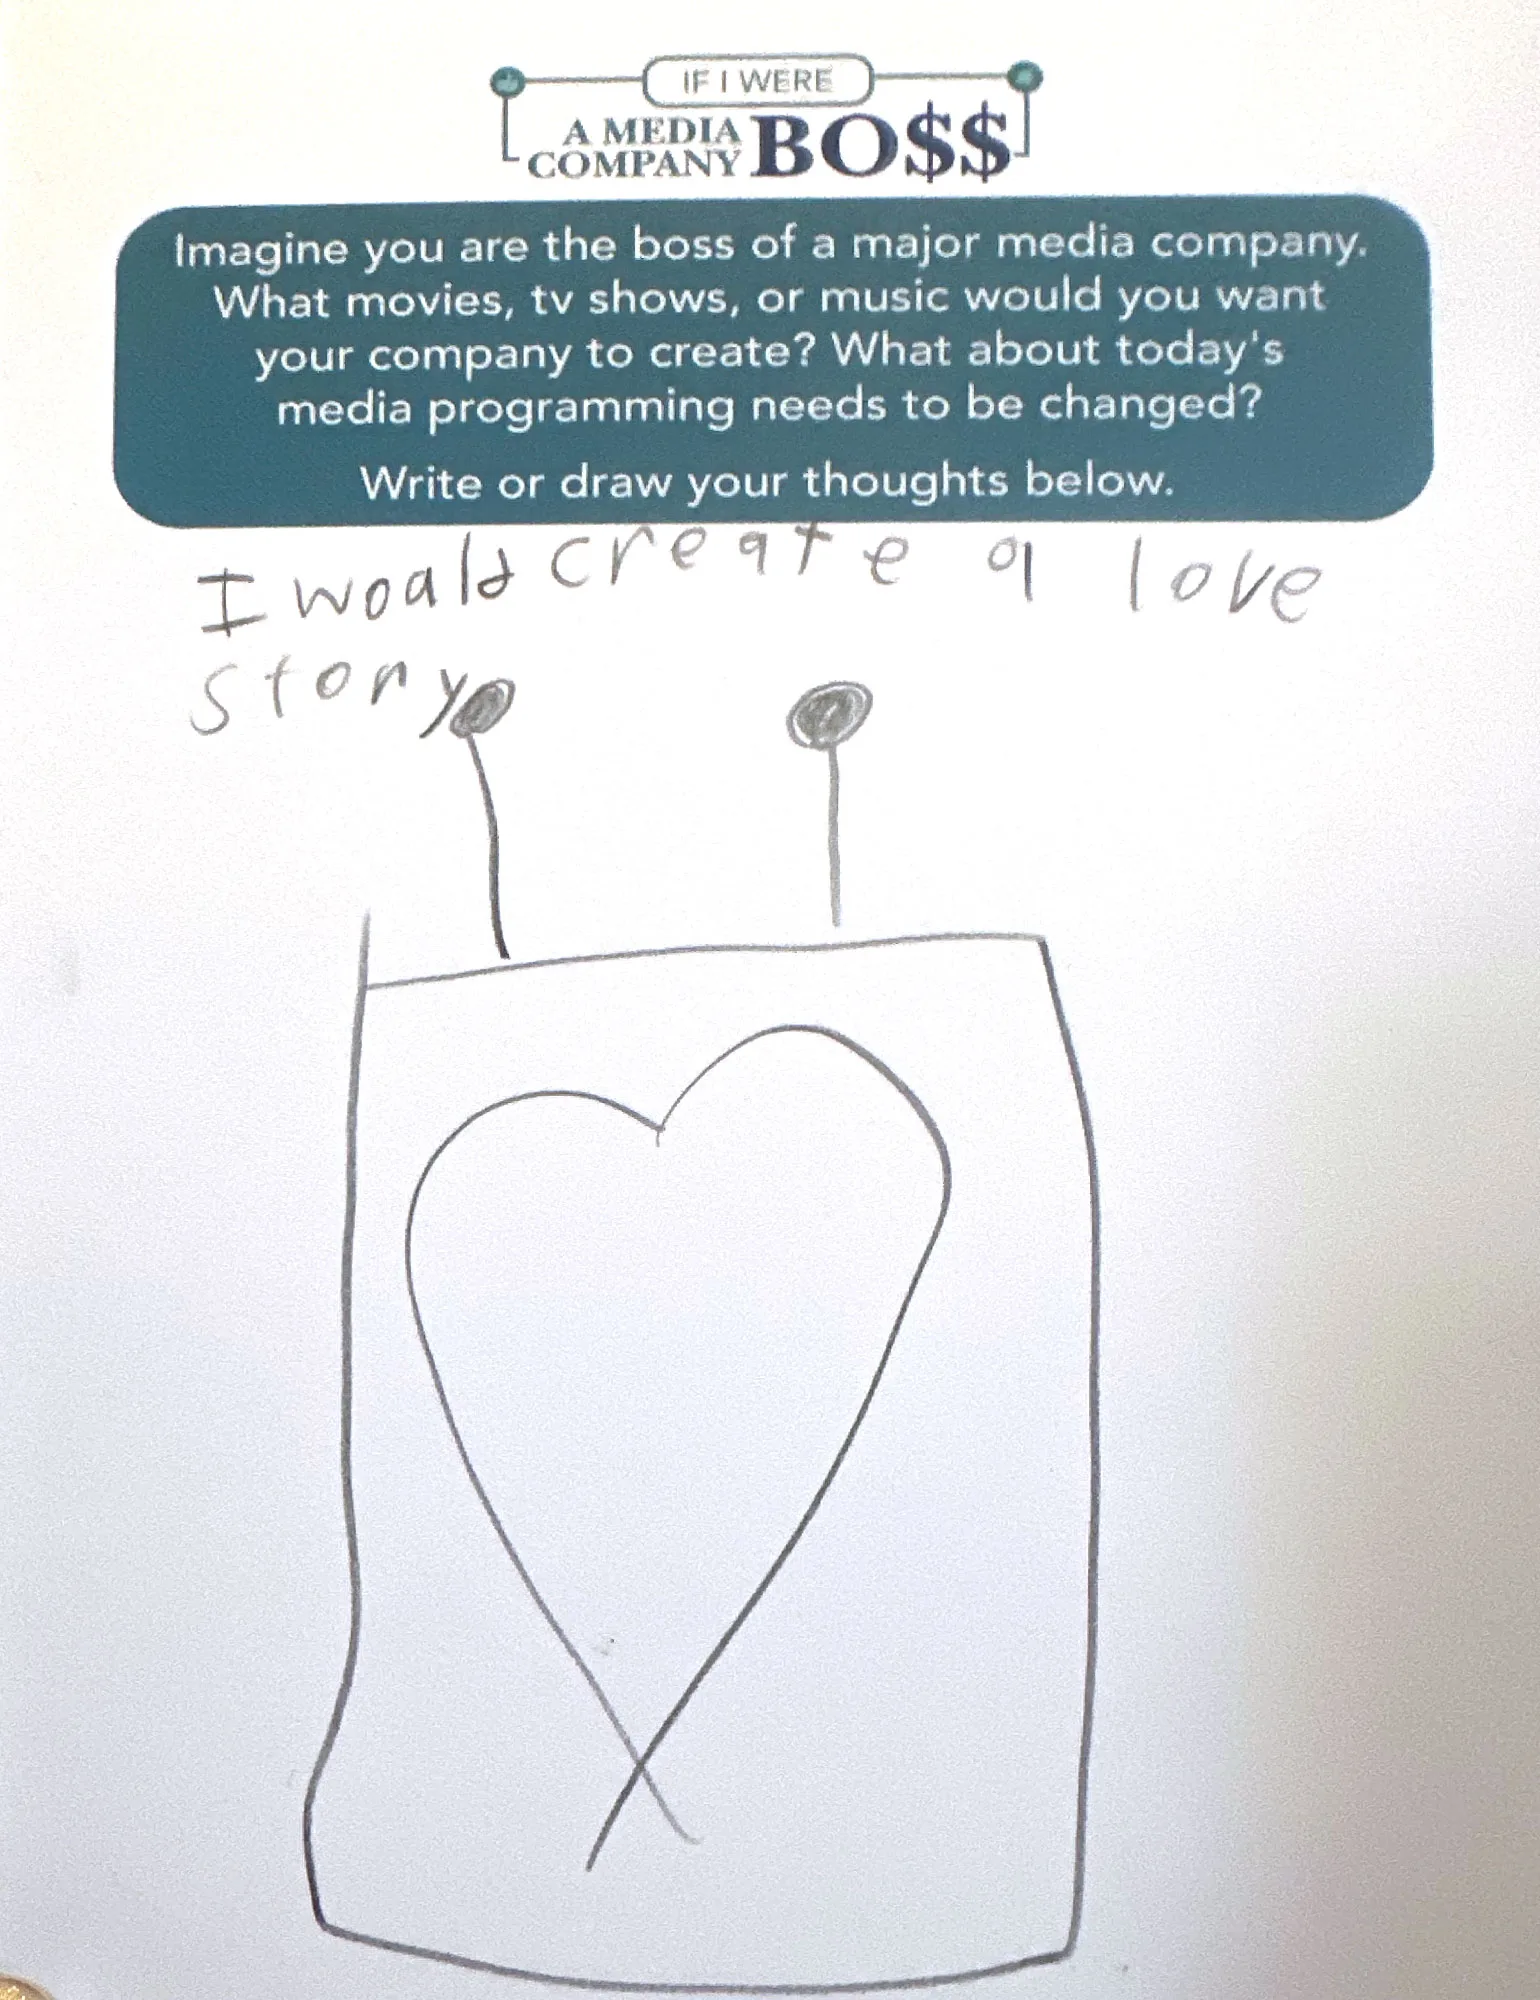 IF I WERE
A MEDIA
COMPANY BO$$
Imagine you are the boss of a major media company.
What movies, tv shows, or music would you want
your company to create? What about today's
media programming needs to be changed?
Write or draw your thoughts below.
I woald create a love
story